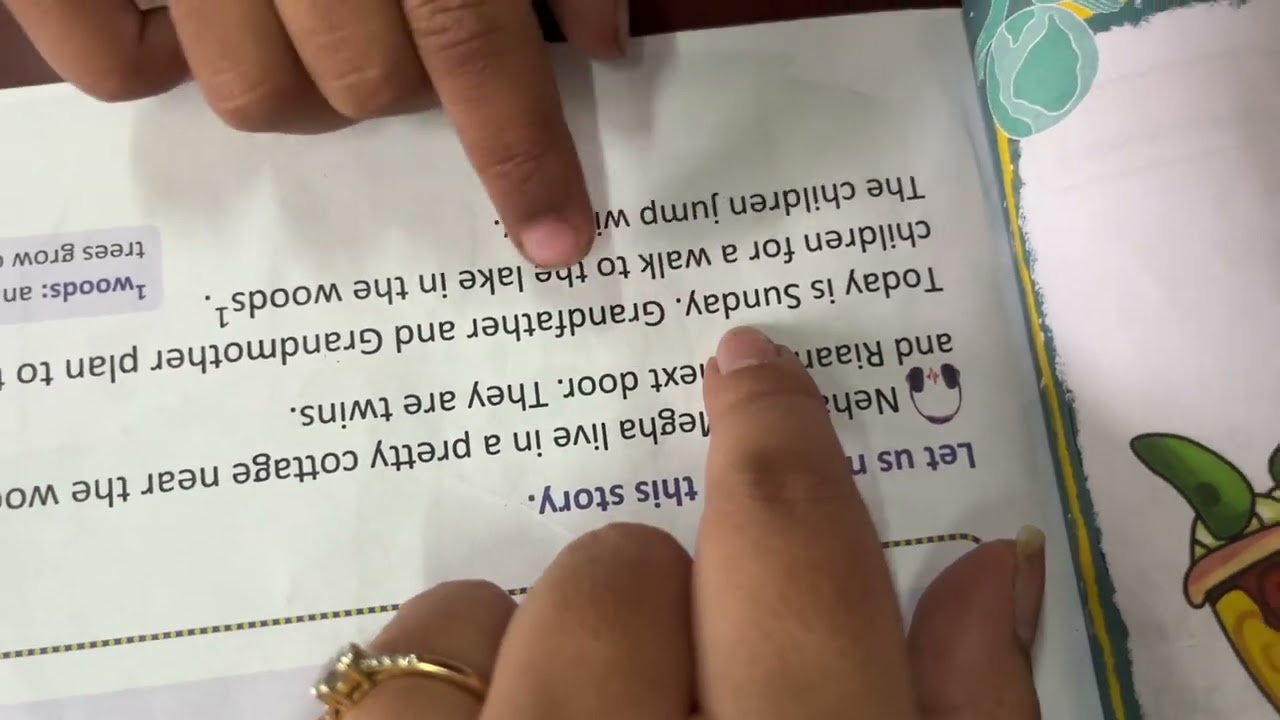 Let us this story.
Neha Megha live in a pretty cottage near the
and Riaan next door. They are twins.
Today is Sunday. Grandfather and Grandmother plan to
children for a walk to the lake in the woods¹.
The children jump
¹woods: an
trees grow